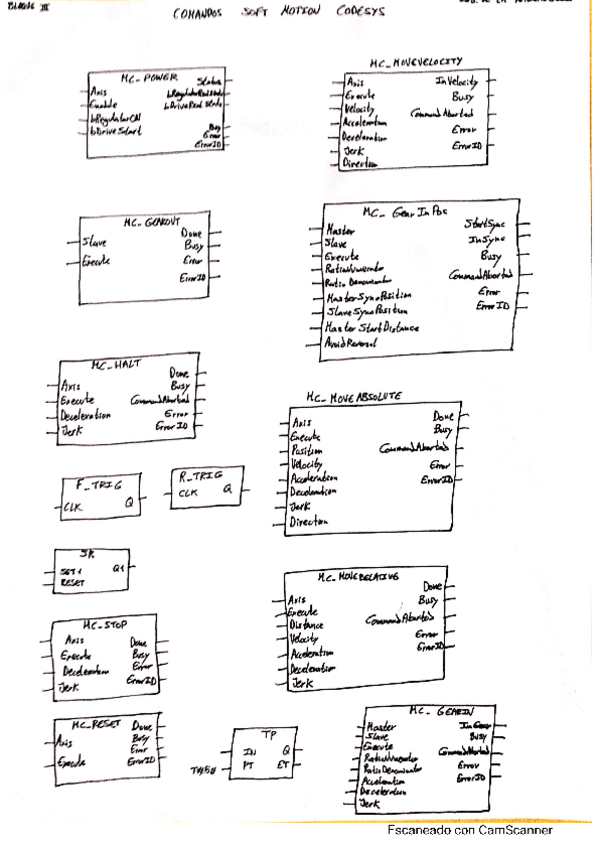 BLOQUE III
COMANDOS SOFT MOTION CODESYS
MC_POWER
Axis Status
Enable bRegulatorRealState
bRegulatorON bDriveRealState
bDriveStart Busy
Error
ErrorID
MC_MOVEVELOCITY
Axis InVelocity
Execute Busy
Velocity CommandAborted
Acceleration Error
Deceleration ErrorID
Jerk
Direction
MC_GEAROUT
Slave Done
Execute Busy
Error
ErrorID
MC_GearInPos
Master StartSync
Slave InSync
Execute Busy
RatioNumerator CommandAborted
Ratio Denominator Error
MasterSyncPosition ErrorID
SlaveSyncPosition
Master StartDistance
AvoidReversal
MC_HALT
Axis Done
Execute Busy
Deceleration CommandAborted
Jerk Error
ErrorID
MC_MOVEABSOLUTE
Axis Done
Execute Busy
Position CommandAborted
Velocity Error
Acceleration ErrorID
Deceleration
Jerk
Direction
F_TRIG
CLK Q
R_TRIG
CLK Q
SR
SET1 Q1
RESET
MC_MOVERELATIVE
Axis Done
Execute Busy
Distance CommandAborted
Velocity Error
Acceleration ErrorID
Deceleration
Jerk
MC_STOP
Axis Done
Execute Busy
Deceleration Error
Jerk ErrorID
MC_RESET
Axis Done
Execute Busy
Error
ErrorID
TP
IN Q
PT ET
MC_GEARIN
Master InGear
Slave Busy
Execute CommandAborted
RatioNumerator Error
RatioDenominator ErrorID
Acceleration
Deceleration
Jerk
Escaneado con CamScanner